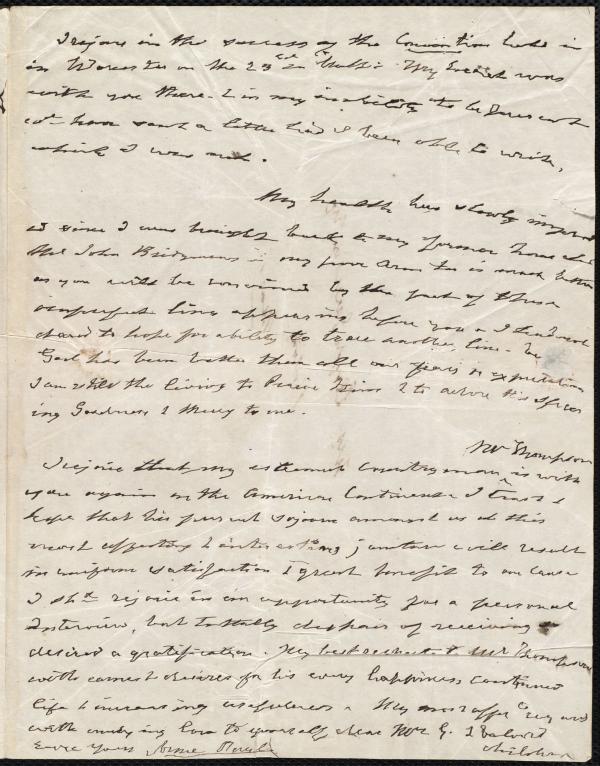 I rejoice in the success of the Convention held in
in Worcester on the 23d & 24th Ult. My heart was
with you there. & in my inability to be present
wd have sent a letter had I been able to write,
which I was not.
My health has slowly improv
ed since I was brought back to my former home
John Bridgmans my poor arm too is much better
as you will be convinced by the fact of these
imperfect lines appearing before you & I
dared to hope for ability to trace another line. but
God has been better than all our fears or expectations
I am still the living to Praise Him & to adore His
ing Goodness & Mercy to me.
Mr Thompson
I rejoice that my esteemed countryman is with
you again on the American Continent & I trust &
hope that his present sojourn amongst us at this
most affecting & interesting juncture will result
in uniform satisfaction & great benefit to our cause
I shd rejoice in an opportunity for a personal
Interview, but totally despair of receiving so
desired a gratification. My best respects to Mr Thompson
with earnest desires for his every happiness continued
life & increasing usefulness. My most affte regards
with undying love to yourself dear Mrs G. & beloved
children
Ever yours